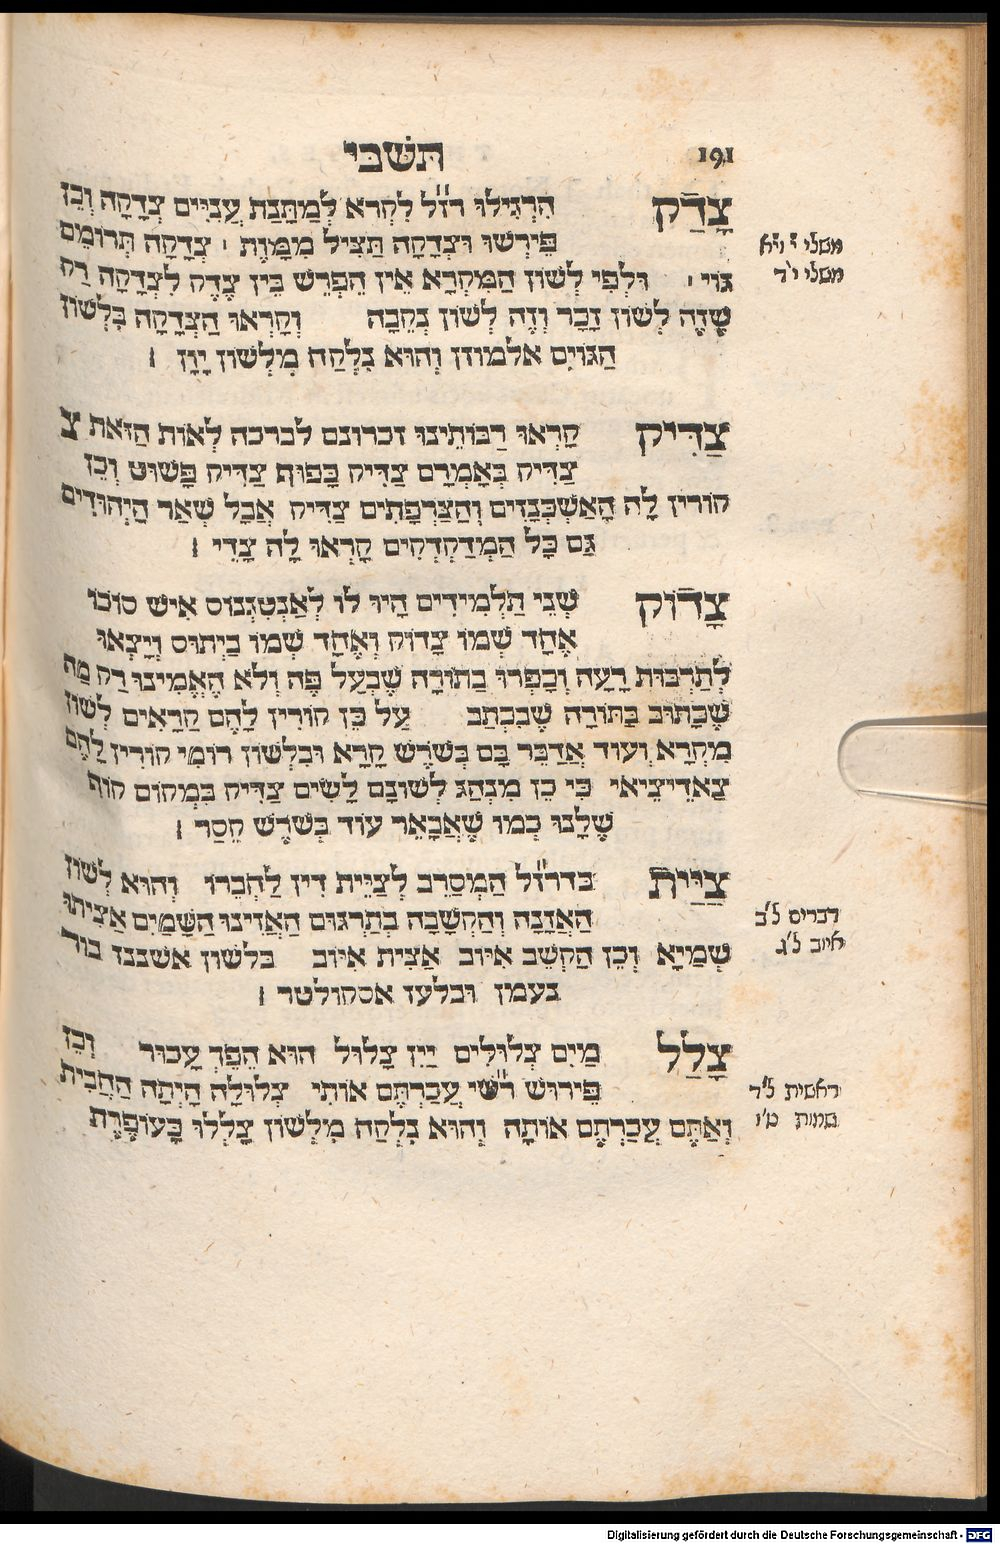 191 תִּשְׁבִּי
צָדַק הִרְגִּילוּ רז״ל לִקְרֹא לְמַתָּנַת עֲנִיִּים צְדָקָה וְכֵן
פֵּירְשׁוּ וּצְדָקָה תַּצִּיל מִמָּוֶת · צְדָקָה תְּרוֹמֵם
גּוֹי · וּלְפִי לְשׁוֹן הַמִּקְרָא אֵין הֶפְרֵשׁ בֵּין צֶדֶק לִצְדָקָה רַק
שֶׁזֶּה לְשׁוֹן זָכָר וְזֶה לְשׁוֹן נְקֵבָה וְקָרְאוּ הַצְּדָקָה בִּלְשׁוֹן
הַגּוֹיִם אלמוזן וְהוּא נִלְקַח מִלְּשׁוֹן יָוָן ׃
משלי י׳ וי״א
משלי י״ד
צַדִּיק קָרְאוּ רַבּוֹתֵינוּ זכרונם לברכה לְאוֹת הַזֹּאת צ
צַדִּיק בְּאָמְרָם צַדִּיק כָּפוּף צַדִּיק פָּשׁוּט וְכֵן
קוֹרִין לָהּ הָאַשְׁכְּנַזִּים וְהַצַּרְפָתִים צַדִּיק אֲבָל שְׁאַר הַיְּהוּדִים
גַּם כָּל הַמְדַקְדְּקִים קָרְאוּ לָהּ צָדִי ׃
צָדוֹק שְׁנֵי תַלְמִידִים הָיוּ לוֹ לְאַנְטִגְנוֹס אִישׁ סוֹכוֹ
אֶחָד שְׁמוֹ צָדוֹק וְאֶחָד שְׁמוֹ בַיְתוֹס וְיָצְאוּ
לְתַרְבּוּת רָעָה וְכָפְרוּ בַּתּוֹרָה שֶׁבְּעַל פֶּה וְלֹא הֶאֱמִינוּ רַק מַה
שֶּׁכָּתוּב בַּתּוֹרָה שֶׁבִּכְתַב עַל כֵּן קוֹרִין לָהֶם קַרָאִים לְשׁוֹן
מִקְרָא וְעוֹד אֲדַבֵּר בָּם בְּשֹׁרֶשׁ קָרָא וּבִלְשׁוֹן רוֹמִי קוֹרִין לָהֶם
צַאדֵיצֵיאי כִּי כֵן מִנְהַג לְשׁוֹנָם לָשִׂים צַדִּיק בִּמְקוֹם קוֹף
שֶׁלָּנוּ כְּמוֹ שֶׁאֲבָאֵר עוֹד בְּשֹׁרֶשׁ חָסַר ׃
צַיַּית בדרז״ל הַמְסָרֵב לְצַיֵּית דִּין לַחְבֵרוֹ וְהוּא לְשׁוֹן
הַאֲזָנָה וְהַקְשָׁבָה בְּתַרְגּוּם הַאֲזִינוּ הַשָּׁמַיִם אַצִּיתוּ
שְׁמַיָּא וְכֵן הַקְשֵׁב אִיּוֹב אַצִּית אִיּוֹב בלשון אשכנז
בעמן ובלעז אסקולטר ׃
דברים ל״ב
איוב ל״ג
צָלַל מַיִם צְלוּלִים יַיִן צָלוּל הוּא הֵפֶךְ עָכוּר וְכֵן
פֵּירוּשׁ רש״י עֲכַרְתֶּם אוֹתִי צְלוּלָה הָיְתָה הֶחָבִית
וְאַתֶּם עֲכַרְתֶּם אוֹתָהּ וְהוּא נִלְקַח מִלְּשׁוֹן צָלְלוּ כָּעוֹפֶרֶת
ראשית ל״ד
שמות ט״ו
Digitalisierung gefördert durch die Deutsche Forschungsgemeinschaft - DFG